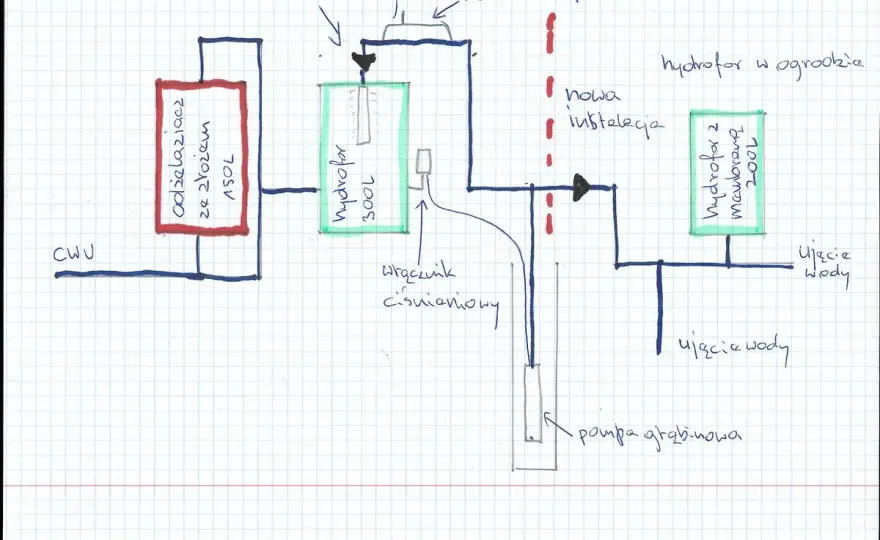 hydrofor w ogrodzie
nowa
instalacja
odżelaziacz
ze złożem
150L
hydrofor
300L
hydrofor z
membraną
200L
CWU
włącznik
ciśnieniowy
ujęcie
wody
ujęcie wody
pompa głębinowa